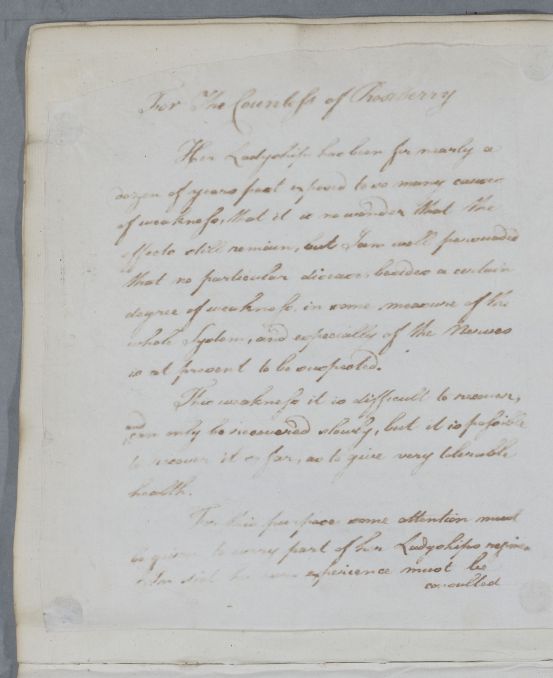 For The Countess of Roseberry
Her Ladyship has been for nearly a
dozen of years past exposed to so many causes
of weakness, that it is no wonder that the
effects still remain, but I am well persuaded
that no particular disease, besides a certain
degree of weakness in some measure of the
whole System, and especially of the Nerves
is at present to be suspected.
This weakness it is difficult to recover,
and can only be recovered slowly, but it is possible
to recover it so far, as to give very tolerable
health.
For this purpose some attention must
be given to every part of her Ladyships regimen
her own experience must be
consulted